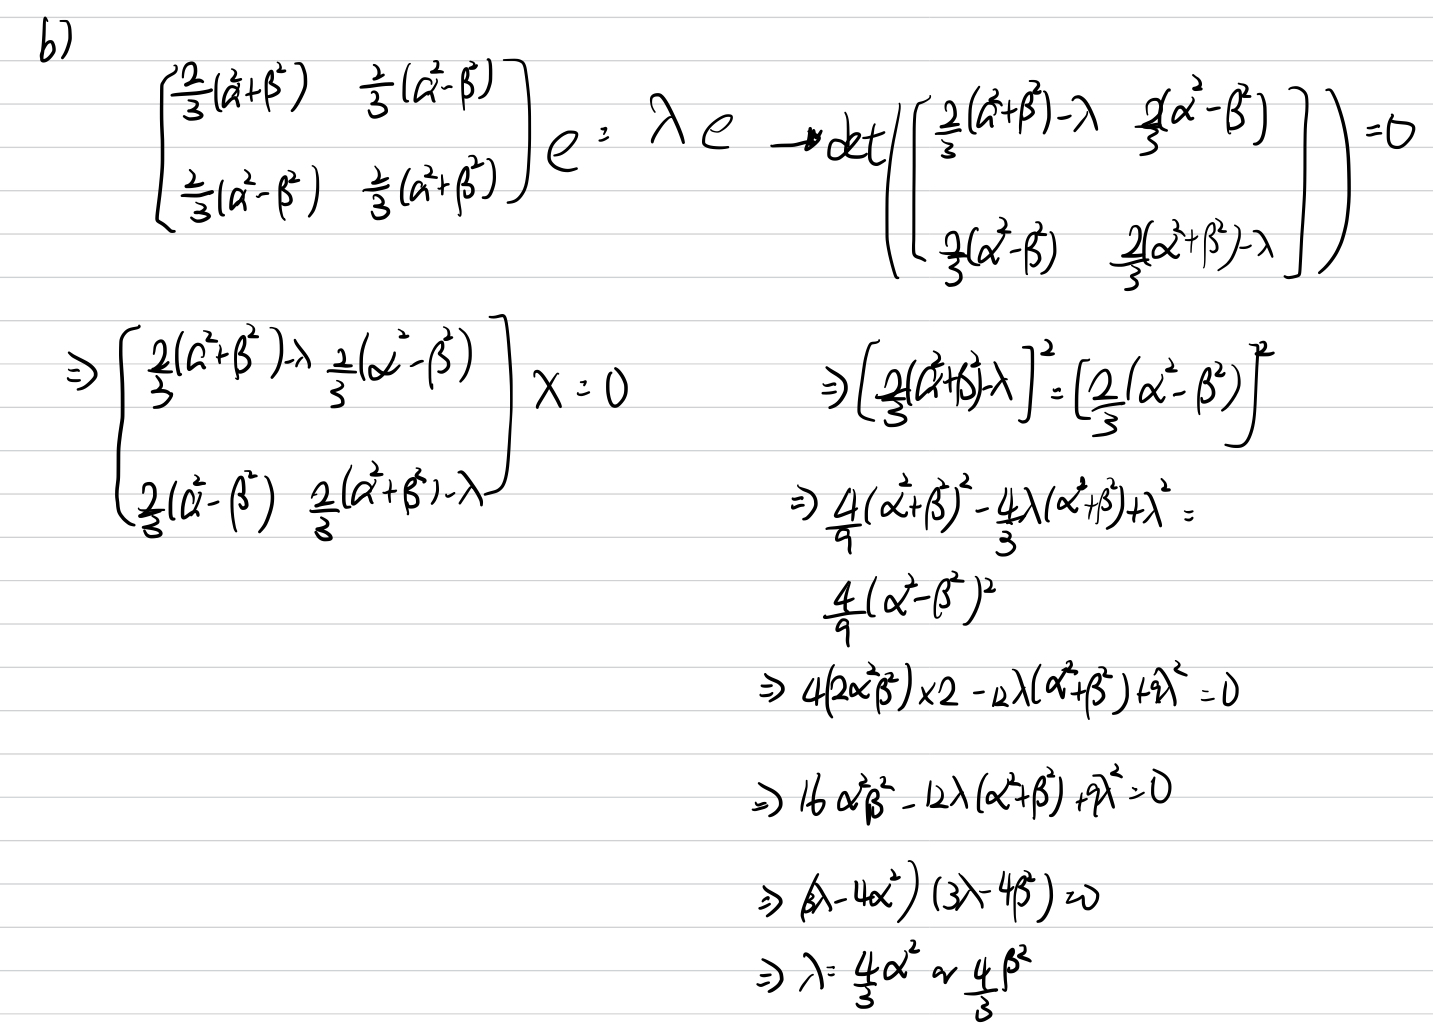 b)
[ 2/3(α²+β²)  2/3(α²-β²) ; 2/3(α²-β²)  2/3(α²+β²) ] e = λe → det([ 2/3(α²+β²)-λ  2/3(α²-β²) ; 2/3(α²-β²)  2/3(α²+β²)-λ ]) = 0
⇒ [ 2/3(α²+β²)-λ  2/3(α²-β²) ; 2/3(α²-β²)  2/3(α²+β²)-λ ] x = 0
⇒ [2/3(α²+β²)-λ]² = [2/3(α²-β²)]²
⇒ 4/9(α²+β²)² - 4/3λ(α²+β²)+λ² =
4/9(α²-β²)²
⇒ 4(2α²β²)×2 - 12λ(α²+β²)+9λ² = 0
⇒ 16α²β² - 12λ(α²+β²)+9λ² = 0
⇒ (3λ-4α²)(3λ-4β²)=0
⇒ λ = 4/3α² or 4/3β²